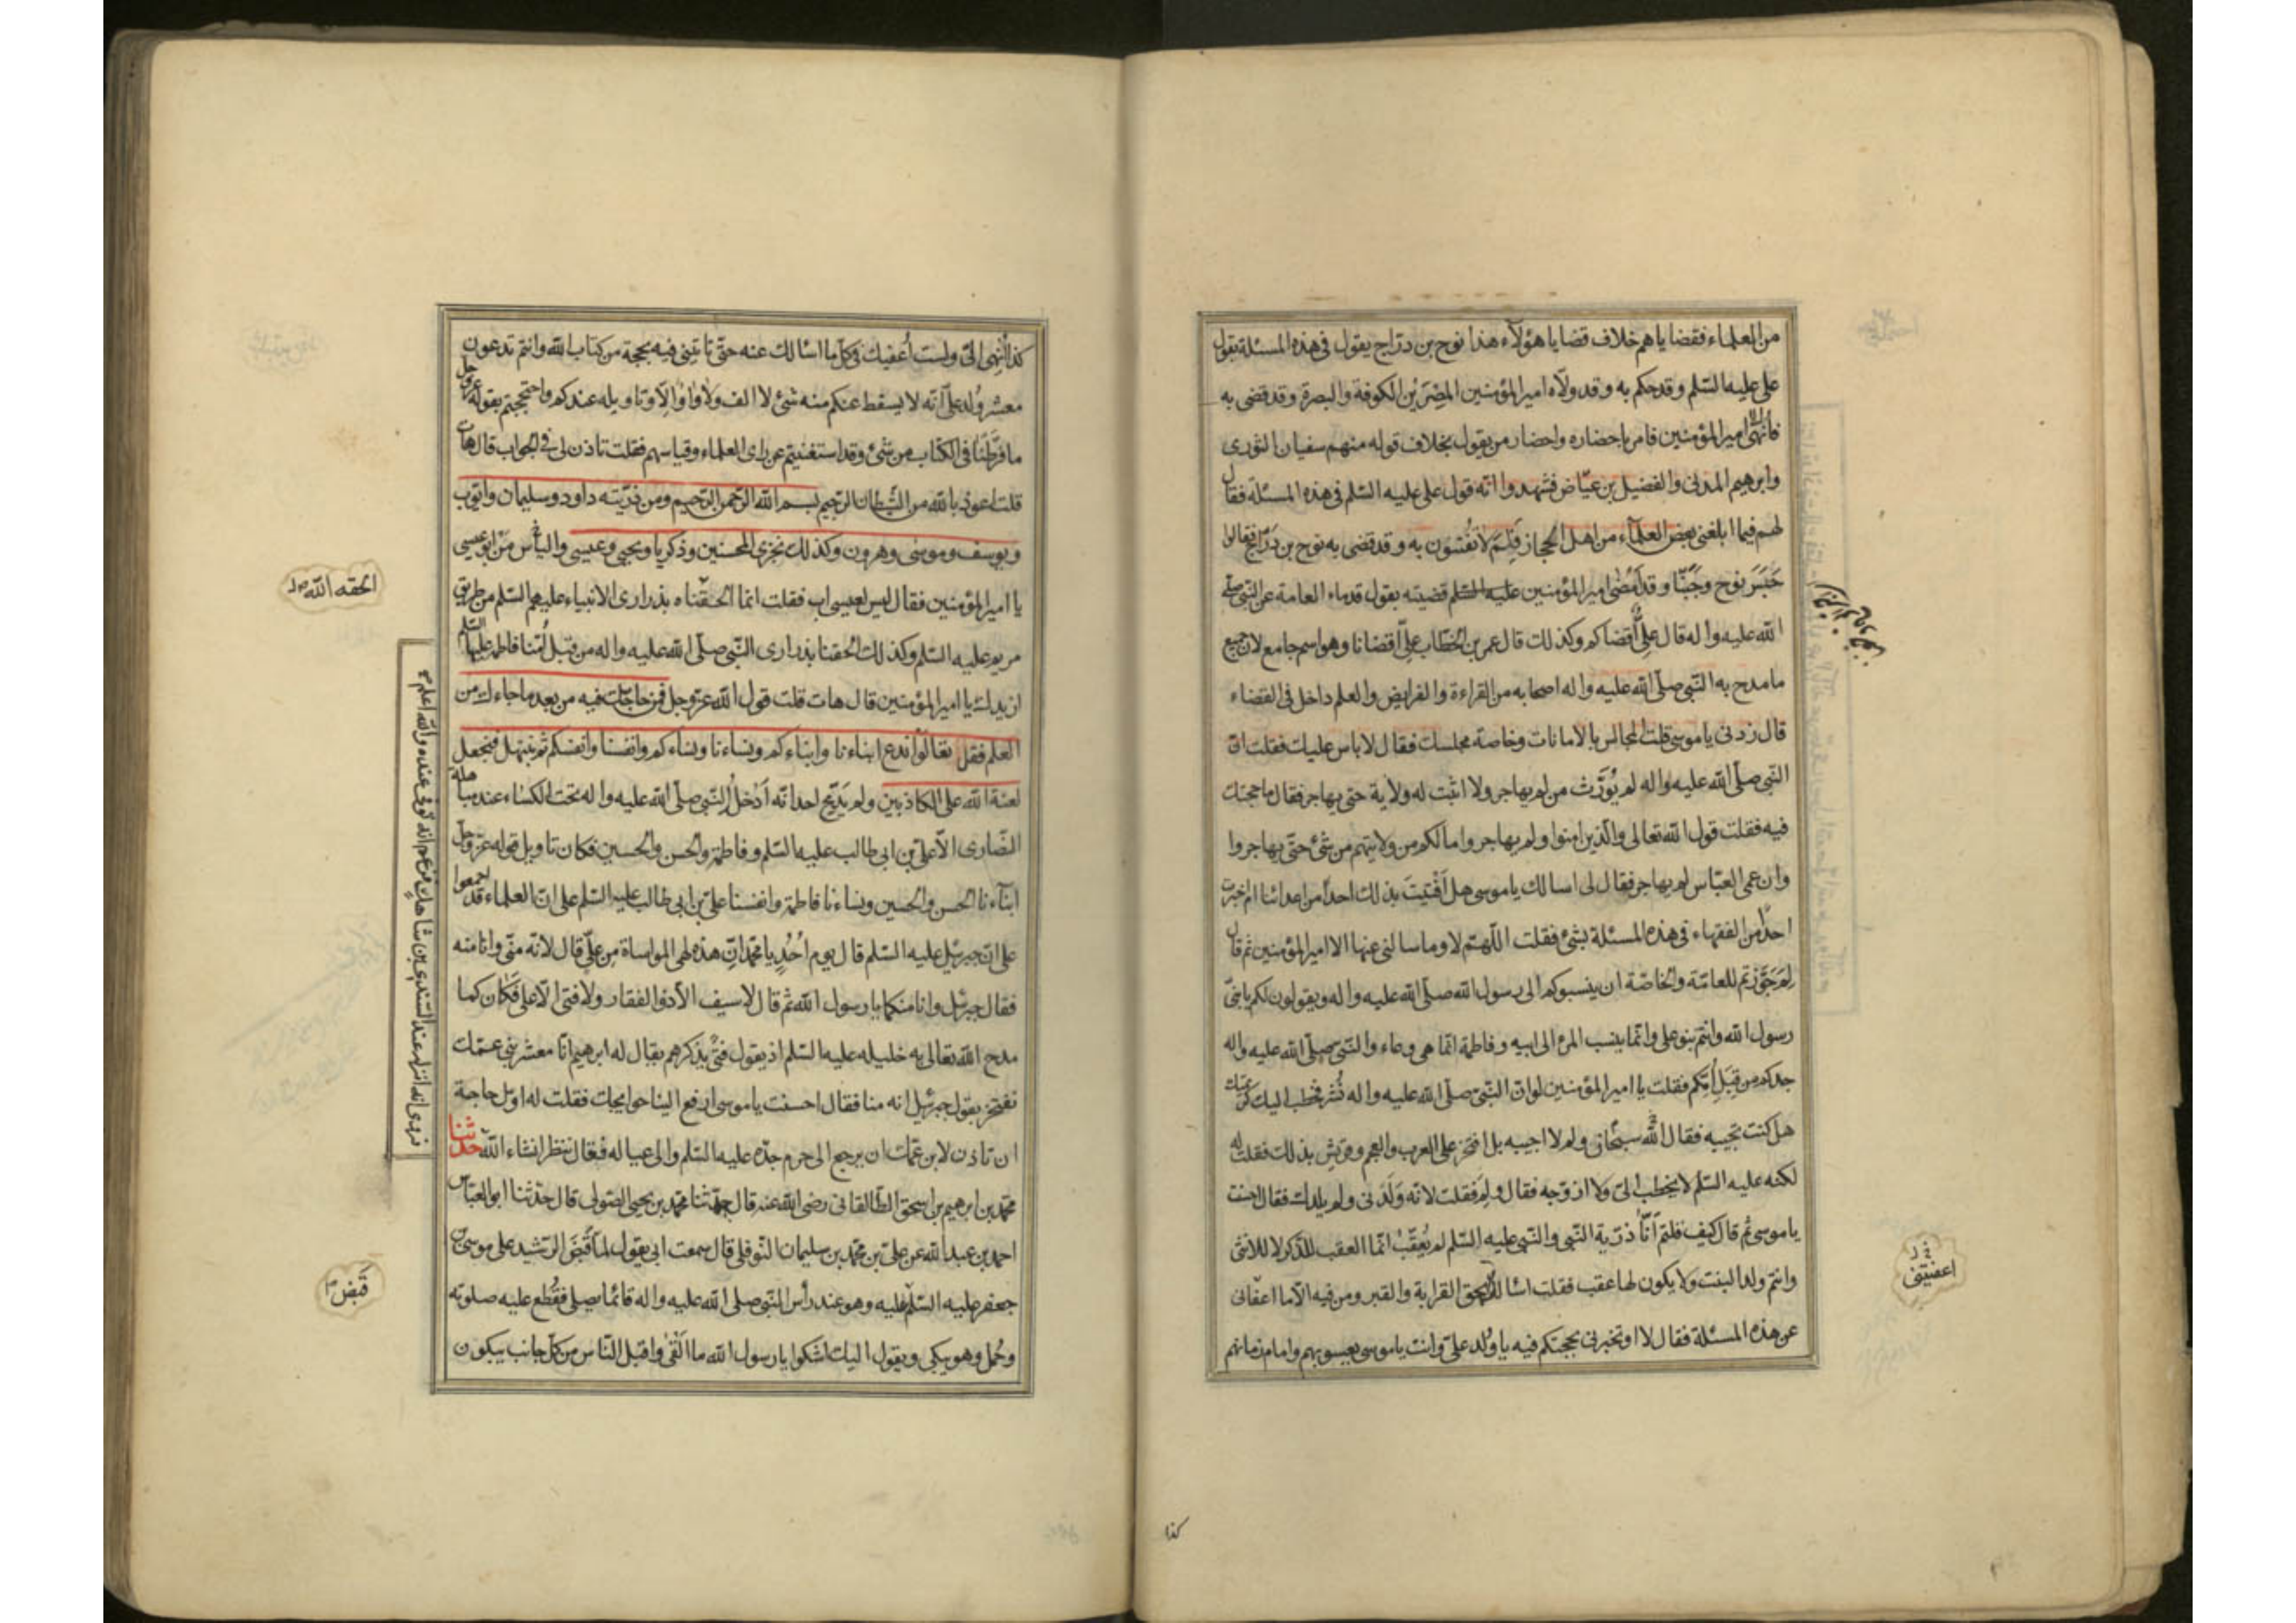 من العلماء فقضاياهم خلاف قضايا هؤلآء هذا نوح بن درّاج يقول في هذه المسئلة بقول
علي عليه السّلم وقد حكم به وقد ولّاه امير المؤمنين المِصْرَيْن الكوفة والبصرة وقد قضى به
فأُنْهِيَ الى امير المؤمنين فامر باحضاره واحضار من يقول بخلاف قوله منهم سفيان الثورى
وابرهيم المدنى والفضيل بن عيّاض فشهدوا انّه قول على عليه السّلم في هذه المسئلة فقال
لهم فيما ابلغنى بعض العلمآء من اهل الحجاز فَلِمَ لا تُفتون به وقد قضى به نوح بن دَرّاج فقالوا
جَسَرَ نوح وجَبُنّا وقد أمضى امير المؤمنين عليه السّلم قضيته بقول قدماء العامة عن النبى صلّى
الله عليه واله قال عليٌّ أقضاكم وكذلك قال عمر بن الخطّاب علىّ اقضانا وهو اسم جامع لان جميع
ما مدح به النّبى صلّى الله عليه واله اصحابه من القراءة والفرايض والعلم داخل فى القضاء
قال زدنى يا موسى قلت المجالس بالامانات وخاصة مجلسك فقال لا باس عليك فقلت انّ
النّبى صلّى الله عليه واله لم يُوَرِّث من لم يهاجر ولا اثبت له ولاية حتى يهاجر فقال ما حجتك
فيه فقلت قول الله تعالى والّذين امنوا ولم يهاجروا ما لكم من ولايتهم من شئ حتّى يهاجروا
وان عمى العبّاس لم يهاجر فقال لى اسالك يا موسى هل اَفْتَيتَ بذلك احداً من اعدائنا ام اخبرت
احداً من الفقهاء فى هذه المسئلة بشئ فقلت اللّهمّ لا وما سالنى عنها الا امير المؤمنين ثم قال
لِمَ جَوَّزتم للعامّة والخاصّة ان ينسبوكم الى رسول الله صلّى الله عليه واله ويقولون لكم يا بنىّ
رسول الله وانتم بنو على وانّما ينسب المرء الى ابيه وفاطمة انّما هى وعاء والنّبى صلّى الله عليه واله
جدكم من قِبَل اُمّكم فقلت يا امير المؤمنين لو انّ النّبىّ صلّى الله عليه واله نُشر فخطب اليك كريمتك
هل كنت تجيبه فقال الله سبحانى ولم لا اجيبه بل افتخر على العرب والعجم وقريش بذلك فقلت له
لكنه عليه السّلم لا يخطب الىّ ولا ازوّجه فقال ولِمَ فقلت لانّه وَلَدَنى ولم يلدك فقال احسنت
يا موسى ثمّ قال كيف قلتم انّا ذرّية النّبى والنّبى عليه السّلم لم يُعقّبْ انّما العقب للذّكر لا للانثى
وانتم ولد البنت ولا يكون لها عقب فقلت اسالك بحق القرابة والقبر ومن فيه الّا ما اعفانى
عن هذه المسئلة فقال لا او تخبرنى بحجتكم فيه يا وُلد علىّ وانت يا موسى يعسوبهم وامام زمانهم
اعفيتنى
كذا
كذا أُنْهِىَ الىّ ولست أُعفيك فى كلّ ما اسالك عنه حتّى تاتينى فيه بحجة من كتاب الله وانتم تدعون
معشر وُلد علىّ انّه لا يسقط عنكم منه شئ لا الف ولا واو الّا وتاويله عندكم واحتججتم بقوله عزّ وجل
ما فرّطنا فى الكتاب من شئ وقد استغنيتم عن راى العلماء وقياسهم فقلت تاذن لى فى الجواب قال هات
قلت اعوذ بالله من الشّيطان الرّجيم بسم الله الرّحمن الرّحيم ومن ذرّيته داود وسليمان وايّوب
ويوسف وموسى وهرون وكذلك نجزى المحسنين وذكريا ويحيى وعيسى والياس مَنْ ابو عيسى
يا امير المؤمنين فقال ليس لعيسى اب فقلت انما الحقناه بذرارى الانبياء عليهم السّلم من طريق
مريم عليه السّلم وكذلك اُلحقنا بذرارى النّبى صلّى الله عليه واله من قبل اُمّنا فاطمة عليها السّلم
ازيدك يا امير المؤمنين قال هات قلت قول الله عزّ وجل فمن حاجّك فيه من بعد ما جاءك من
العلم فقل تعالوا ندع ابناءنا وابناءكم ونساءنا ونساءكم وانفسنا وانفسكم ثم نبتهل فنجعل
لعنة الله على الكاذبين ولم يَدّعِ احد انّه أدخل النّبى صلّى الله عليه واله تحت الكساء عند مباهلة
النّصارى الّا علىّ بن ابى طالب عليه السّلم وفاطمة والحسن والحسين فكان تاويل قوله عزّ وجلّ
ابنآءنا الحسن والحسين ونساءنا فاطمة وانفسنا علىّ بن ابى طالب عليه السّلم على انّ العلماء قد اجمعوا
على انّ جبرئيل عليه السّلم قال يوم اُحُدٍ يا محمّد انّ هذه لهى المواساة مِن علىّ قال لانّه منّى وانا منه
فقال جبرئيل وانا منكما يا رسول الله ثم قال لا سيف الّا ذو الفقار ولا فتى الّا على فكان كما
مدح الله تعالى به خليله عليه السّلم اذ يقول فتًى يذكرهم يقال له ابرهيم انّا معشر بنى عمّك
نفتخر بقول جبرئيل انه منا فقال احسنت يا موسى ارفع الينا حوايجك فقلت له اوّل حاجة
ان تاذن لابن عمّك ان يرجع الى حرم جدّه عليه السّلم والى عياله فقال ننظر انشاء الله حدّثنا
محمّد بن ابرهيم بن اسحق الطّالقانى رضى الله عنه قال حدّثنا محمّد بن يحيى الصّولى قال حدّثنا ابو العبّاس
احمد بن عبد الله عن علىّ بن محمّد بن سليمان النّوفلى قال سمعت ابى يقول لمّا قَبَضَ الرّشيد على موسى بن
جعفر عليه السّلم عليه وهو عند رأس النّبى صلى الله عليه واله قائما يصلى فقُطع عليه صلوته
وحُمل وهو يبكى ويقول اليك اشكو يا رسول الله ما اَلْقى واقبل النّاس من كلّ جانب يبكون
الحقه الله
فروى انه انزله عند السّندى بن شاهك فزعم انه توفى عنده والله اعلم
قَبَض